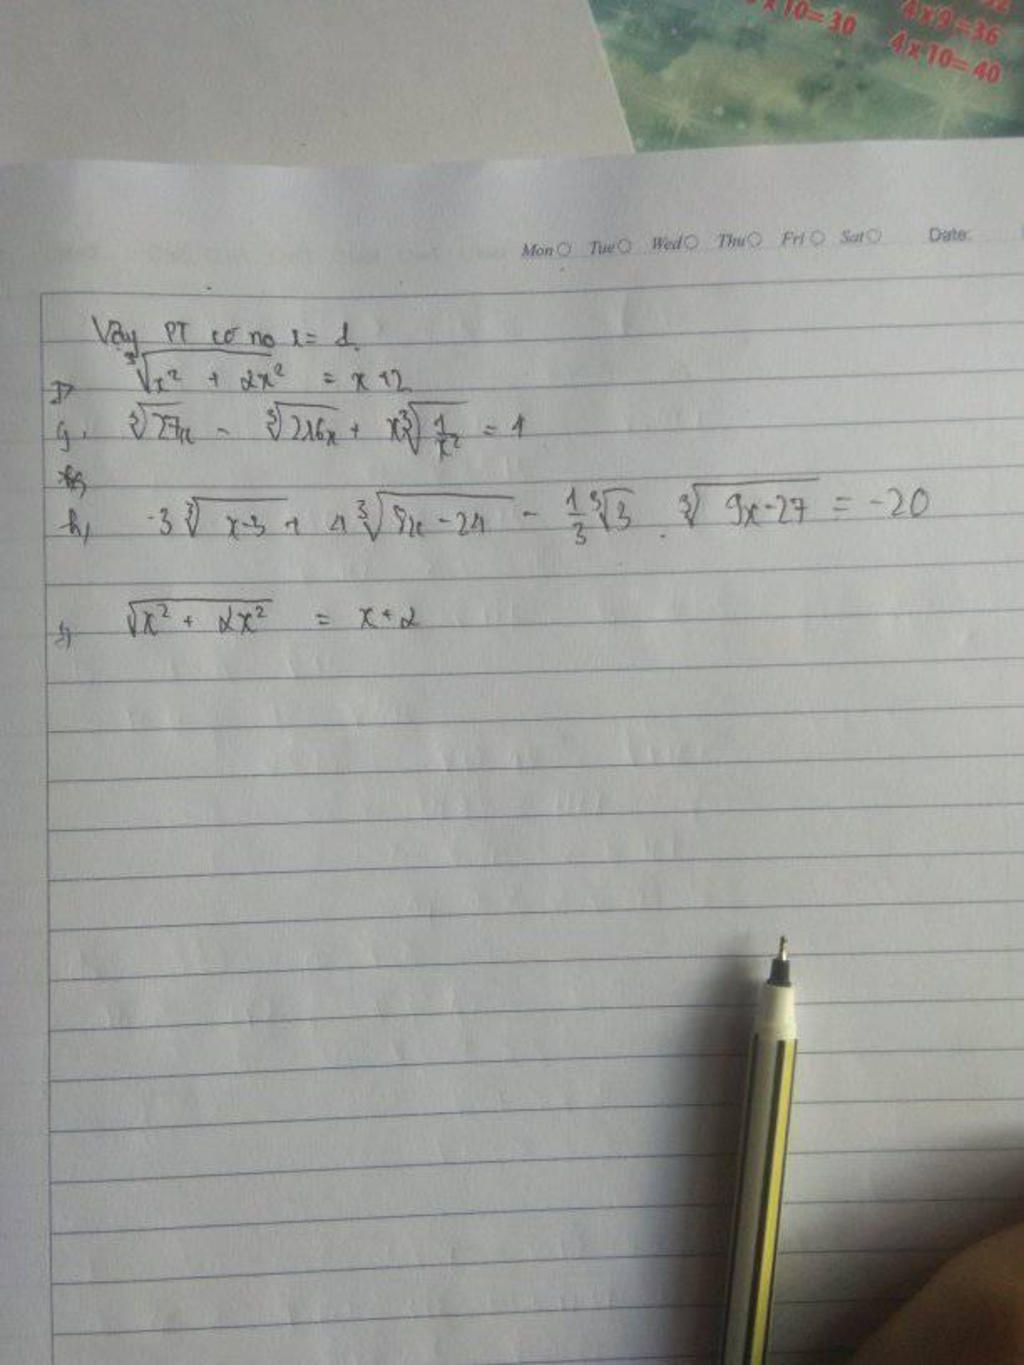 x10=30
4x9=36
4x10=40
Mon Tue Wed Thu Fri Sat Date:
Vậy PT có no x = 1
∛x² + 2x² = x+2
g, ∛27x - ∛216x + x∛1/x² = 1
h, -3∛x-3 + 4∛8x-24 - 1/3 ∛3 . ∛9x-27 = -20
√x² + 2x² = x+2